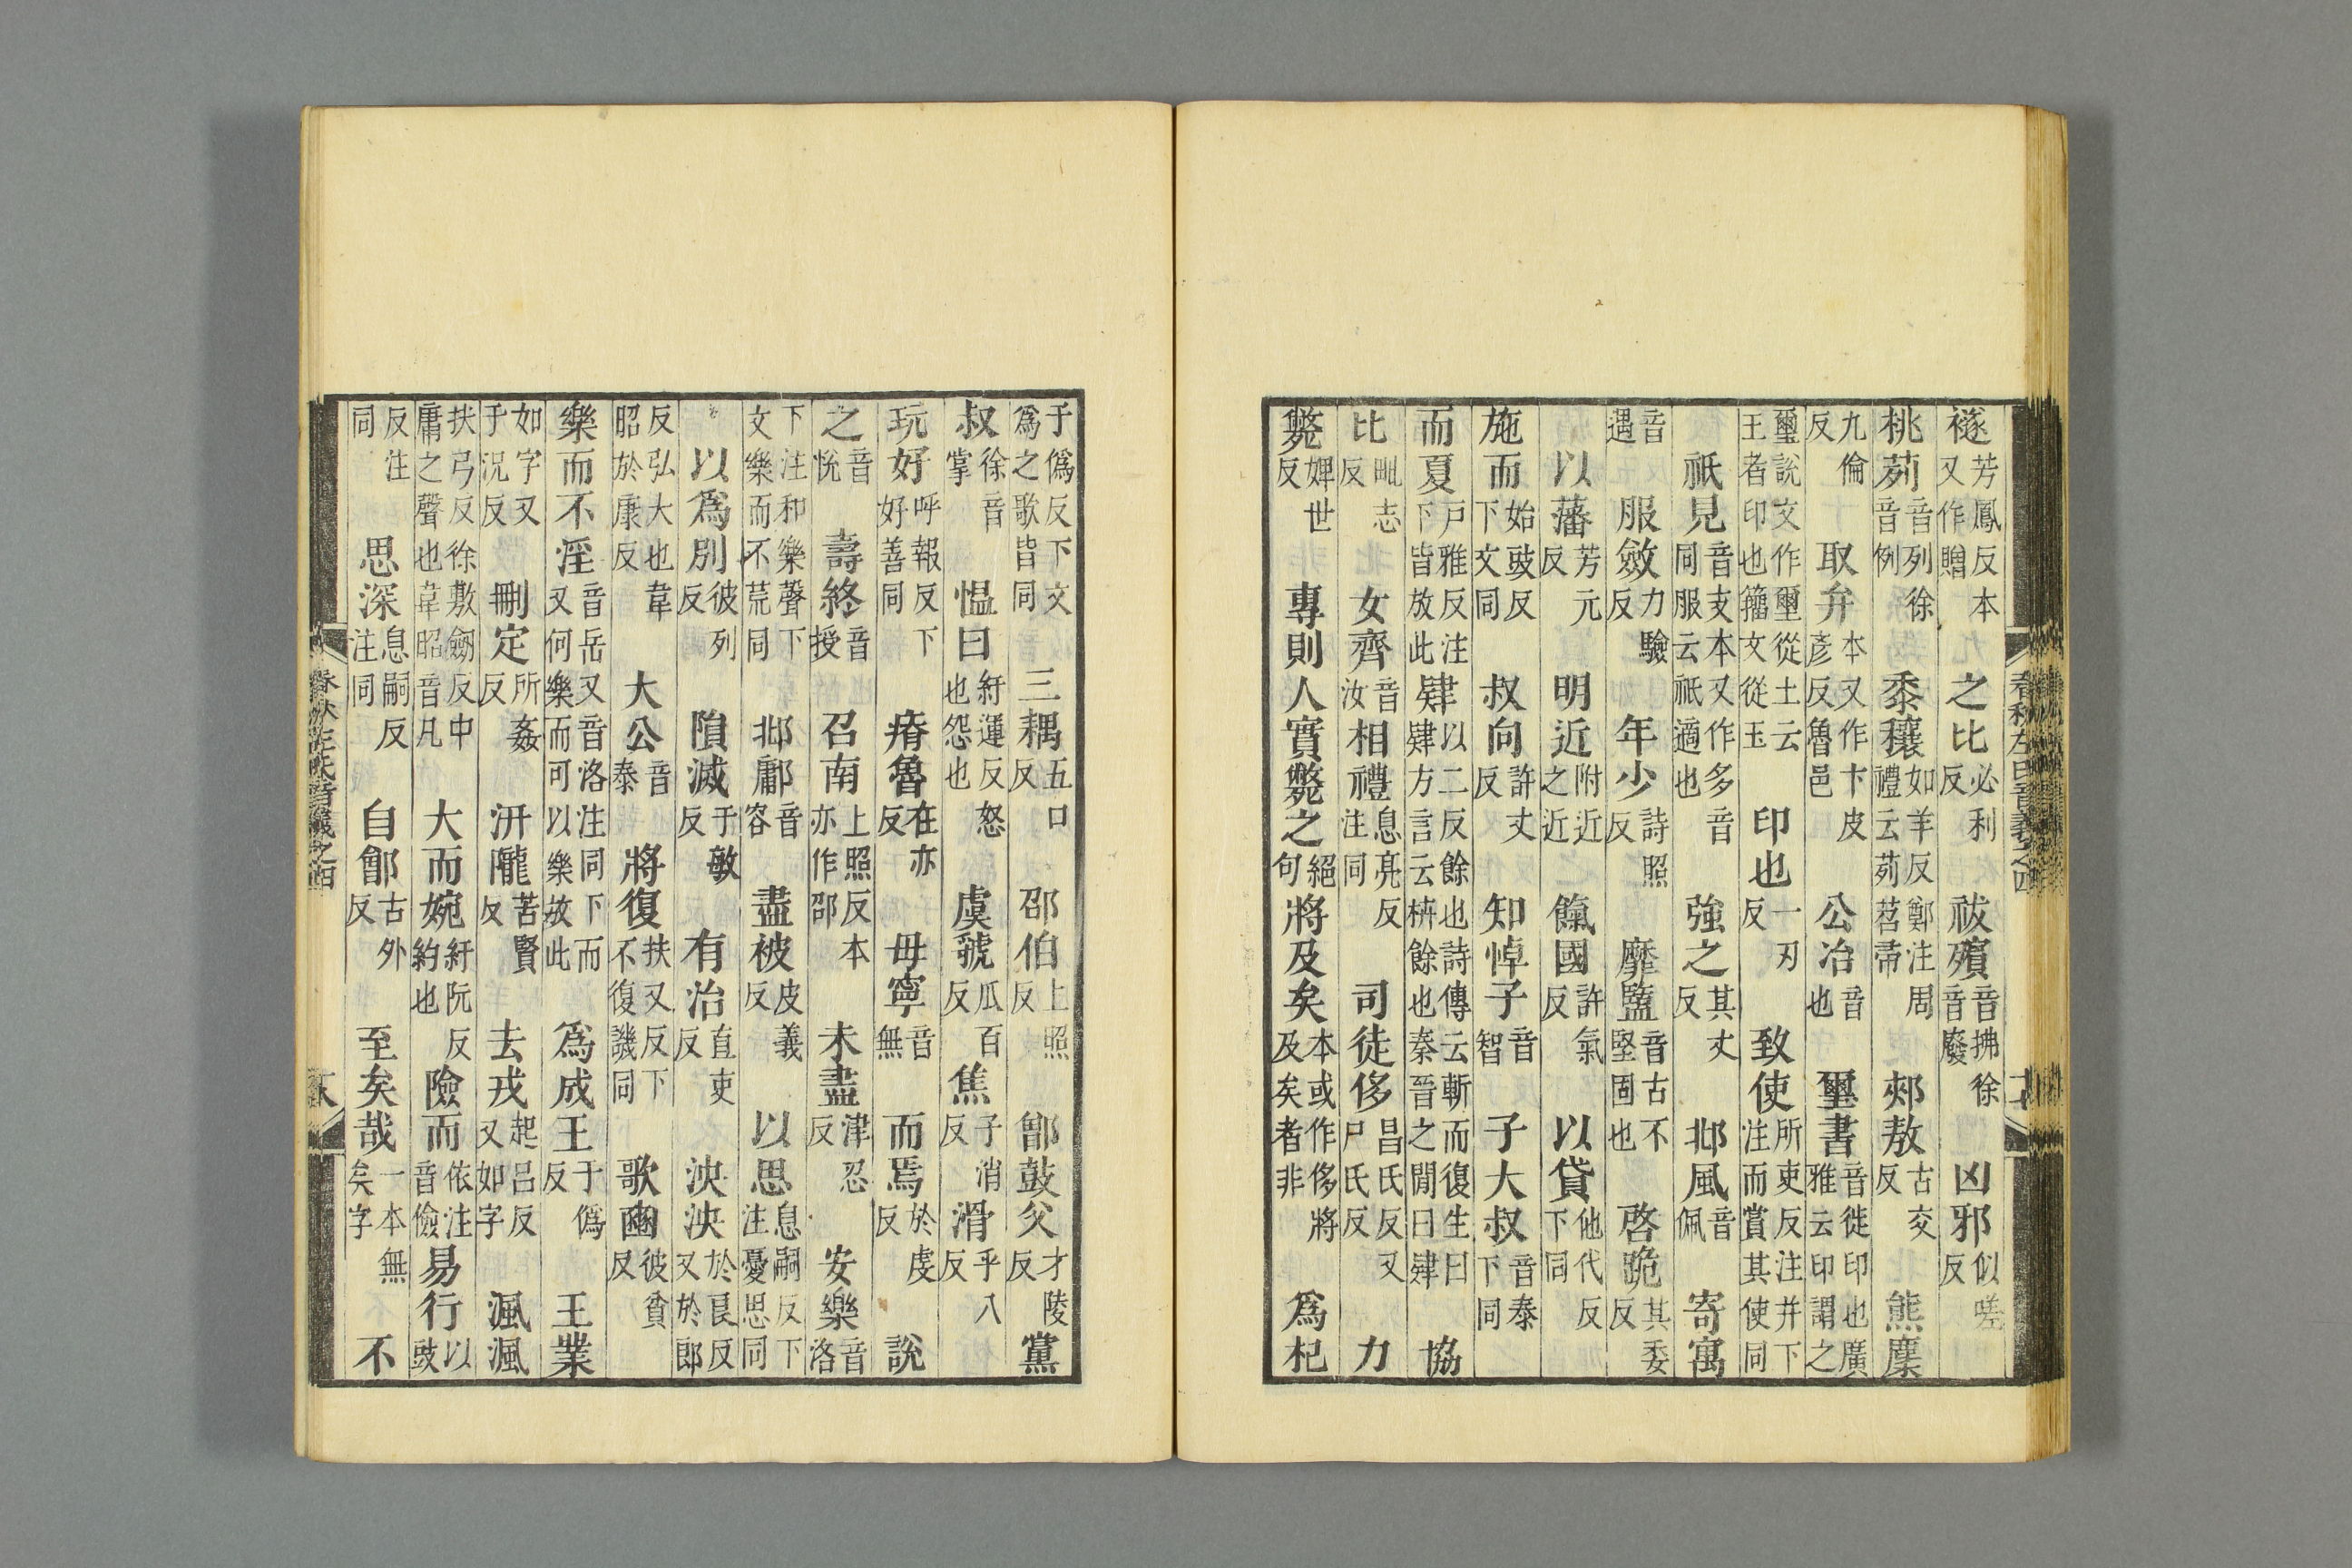 禭芳鳳反本又作贈之比必利反祓殯音拂徐音廢凶邪似嗟反
桃茢音列徐音例黍穰如羊反鄭注周禮云茢苕帚郟敖古夾反熊麇
九倫反取弁本又作卞皮彥反魯邑公冶音也璽書音徙印也廣雅云印謂之
璽說文作壐從土云王者印也籀文從玉印也一刃反致使所吏反注并下注而賞其使同
祇見音支本又作多音同服云祇適也強之其丈反邶風音佩寄寓
音遇服斂力驗反年少詩照反靡盬音古不堅固也啓跪其委反
以藩芳元反明近附近之近餼國許氣反以貸他代反下同
施而始豉反下文同叔向許丈反知悼子音智子大叔音泰下同
而夏戶雅反注下皆放此肄以二反餘也詩傳云斬而復生曰肄方言云枿餘也秦晉之閒曰肄協
比毗志反女齊音汝相禮息亮反注同司徒侈昌氏反又尸氏反力
斃婢世反專則人實斃之絕句將及矣本或作侈將及矣者非爲杞
于僞反下文爲之歌皆同三耦五口反邵伯上照反鄫鼓父才陵反黨
叔徐音掌慍曰紆運反怒也怨也虞虢瓜百反焦子消反滑乎八反
玩好呼報反下好善同瘠魯在亦反毋寧音無而焉於虔反說
之音悅壽終音授召南上照反本亦作邵未盡津忍反安樂音洛
下注和樂聲下文樂而不荒同邶鄘音容盡被皮義反以思息嗣反下注憂思同
以爲別彼列反隕滅于敏反有治直吏反泱泱於良反又於郎
反弘大也韋昭於康反大公音泰將復扶又反下不復譏同歌豳彼貧反
樂而不淫音岳又音洛注同下而又何樂而可以樂故此爲成王于僞反王業
如字又于況反刪定所姦反汧隴苦賢反去戎起呂反又如字渢渢
扶弓反徐敷劒反中庸之聲也韋昭音凡大而婉紆阮反約也險而依注音儉易行以豉
反注同思深息嗣反注同自鄶古外反至矣哉一本無矣字不
春秋左氏音義之四